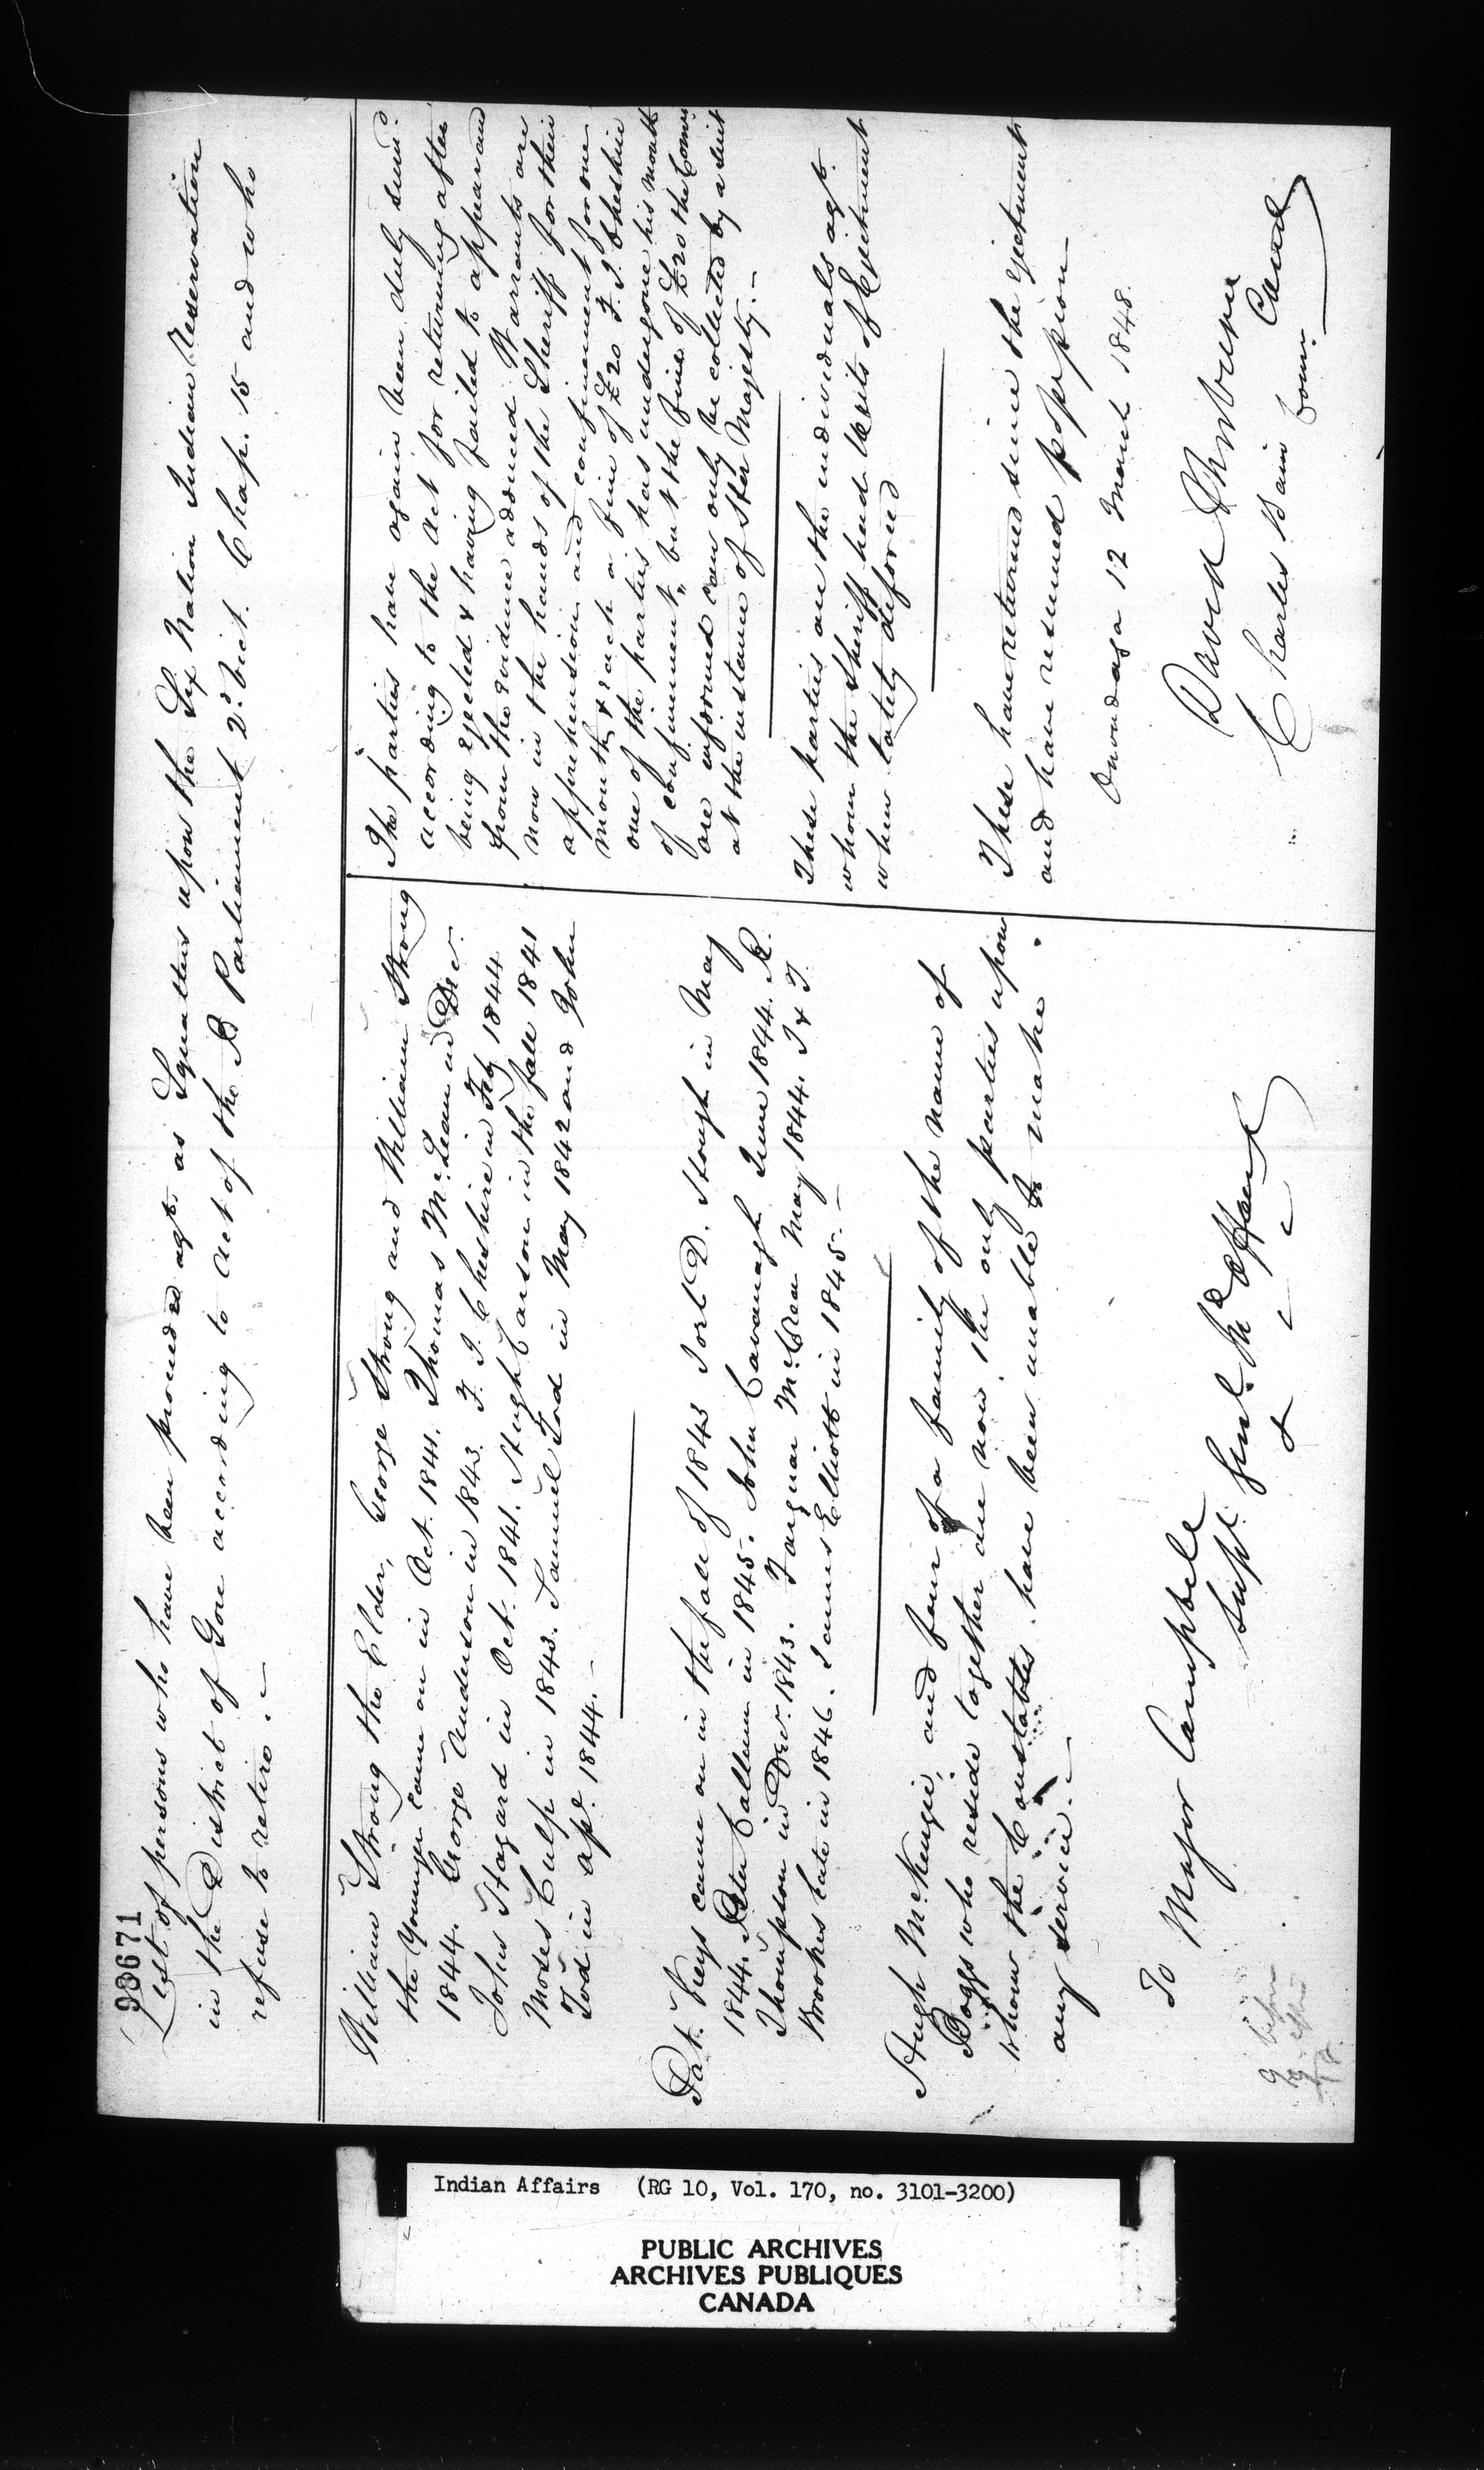 98671
List of persons who have been proceeded agt. as Squatters upon the Six Nation Indian Reservation
in the District of Gore according to act of the B Parliament 2d. Vict. Chap. 15 and who
refuse to retire.—
William Strong the Elder, George Strong and William Strong
the Younger came on in Oct. 1841. Thomas McLean in Decr.
1844. George Anderson in 1843. F. J. Cheshire in Feby 1844
John Hagard in Oct. 1841. Hugh Carson in the fall 1841
Moses Culp in 1843. Samuel Tod in May 1842 and John
Tod in apl. 1844.—
Pat. Keys came on in the fall of 1843 Joel D. Hough in May
1844. Peter Callum in 1845. John Cavanagh June 1844. R.
Thompson in Decr. 1843. Farquar McCrea May 1844. J & T
Brookes late in 1846. James Elliott in 1845.—
Hugh McKenzie, and four of a family of the name of
Boggs who reside together are now the only parties upon
whom the Constables have been unable to make
any service.—
To
Major Campbell
Supt. Genl. Ind Affairs
& c c
The parties have again been duly sumd.
according to the Act for returning after
being ejected & having failed to appear and
from the evidence adduced Warrants are
now in the hands of the Sheriff for their
apprehension and confinement for one
month & each a fine of £20 F. J. Cheshire
one of the parties has undergone his month
of confinement, but the fine of £20 the Comrs
are informed can only be collected by a suit
at the instance of Her Majesty.—
These parties are the individuals agt.
whom the Sheriff had Writs of Ejectment
when lately deforced
These have returned since the ejectment
and have resumed possession
Onondaga 12 March 1848.
David Thorburn
Charles Bain Comr.
Indian Affairs (RG 10, Vol. 170, no. 3101-3200)
PUBLIC ARCHIVES
ARCHIVES PUBLIQUES
CANADA